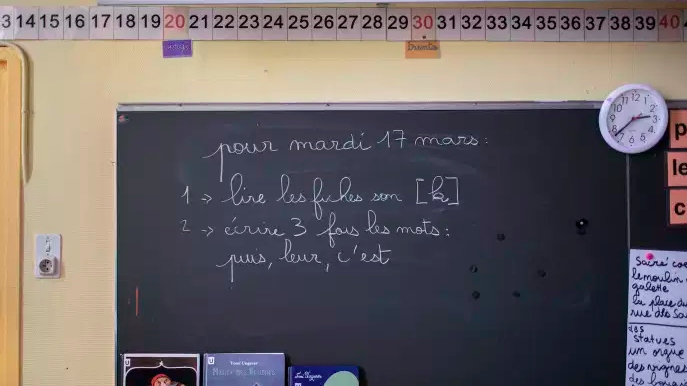 13 14 15 16 17 18 19 20 21 22 23 24 25 26 27 28 29 30 31 32 33 34 35 36 37 38 39 40
vingt
trente
pour mardi 17 mars :
1 → lire les fiches son [k]
2 → écrire 3 fois les mots :
puis, leur, c'est
12 1 2 3 4 5 6 7 8 9 10 11
p
le
c
Sacré coe
le moulin
galette
la place du
rue des Sa
des
statues
un orgue
des vignes
Tomi Ungerer